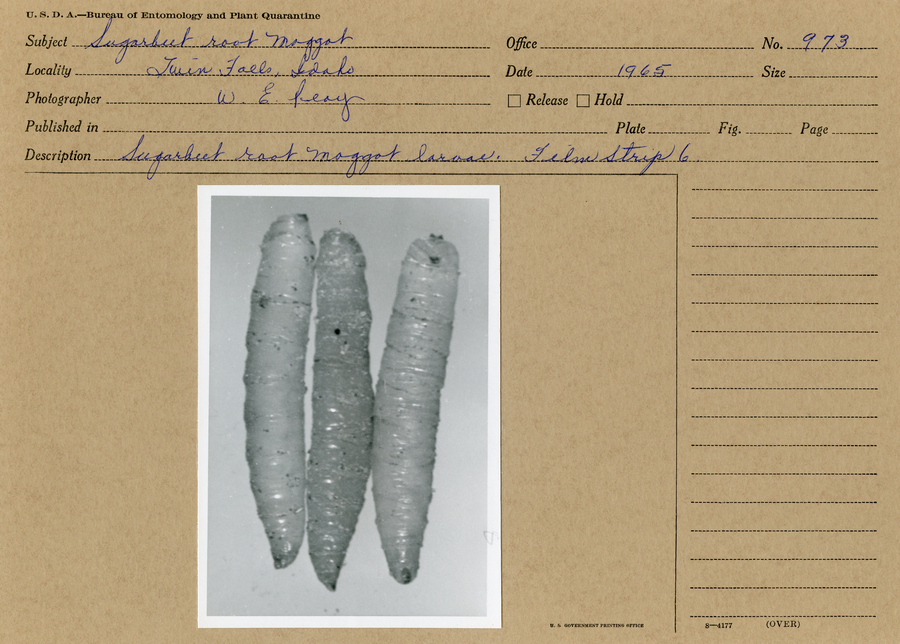 U. S. D. A.—Bureau of Entomology and Plant Quarantine
Subject Sugarbeet root maggot Office No. 973
Locality Twin Falls, Idaho Date 1965 Size
Photographer W. E. Peay Release Hold
Published in Plate Fig. Page
Description Sugarbeet root maggot larvae. Film Strip 6
U. S. GOVERNMENT PRINTING OFFICE 8—4177 (OVER)